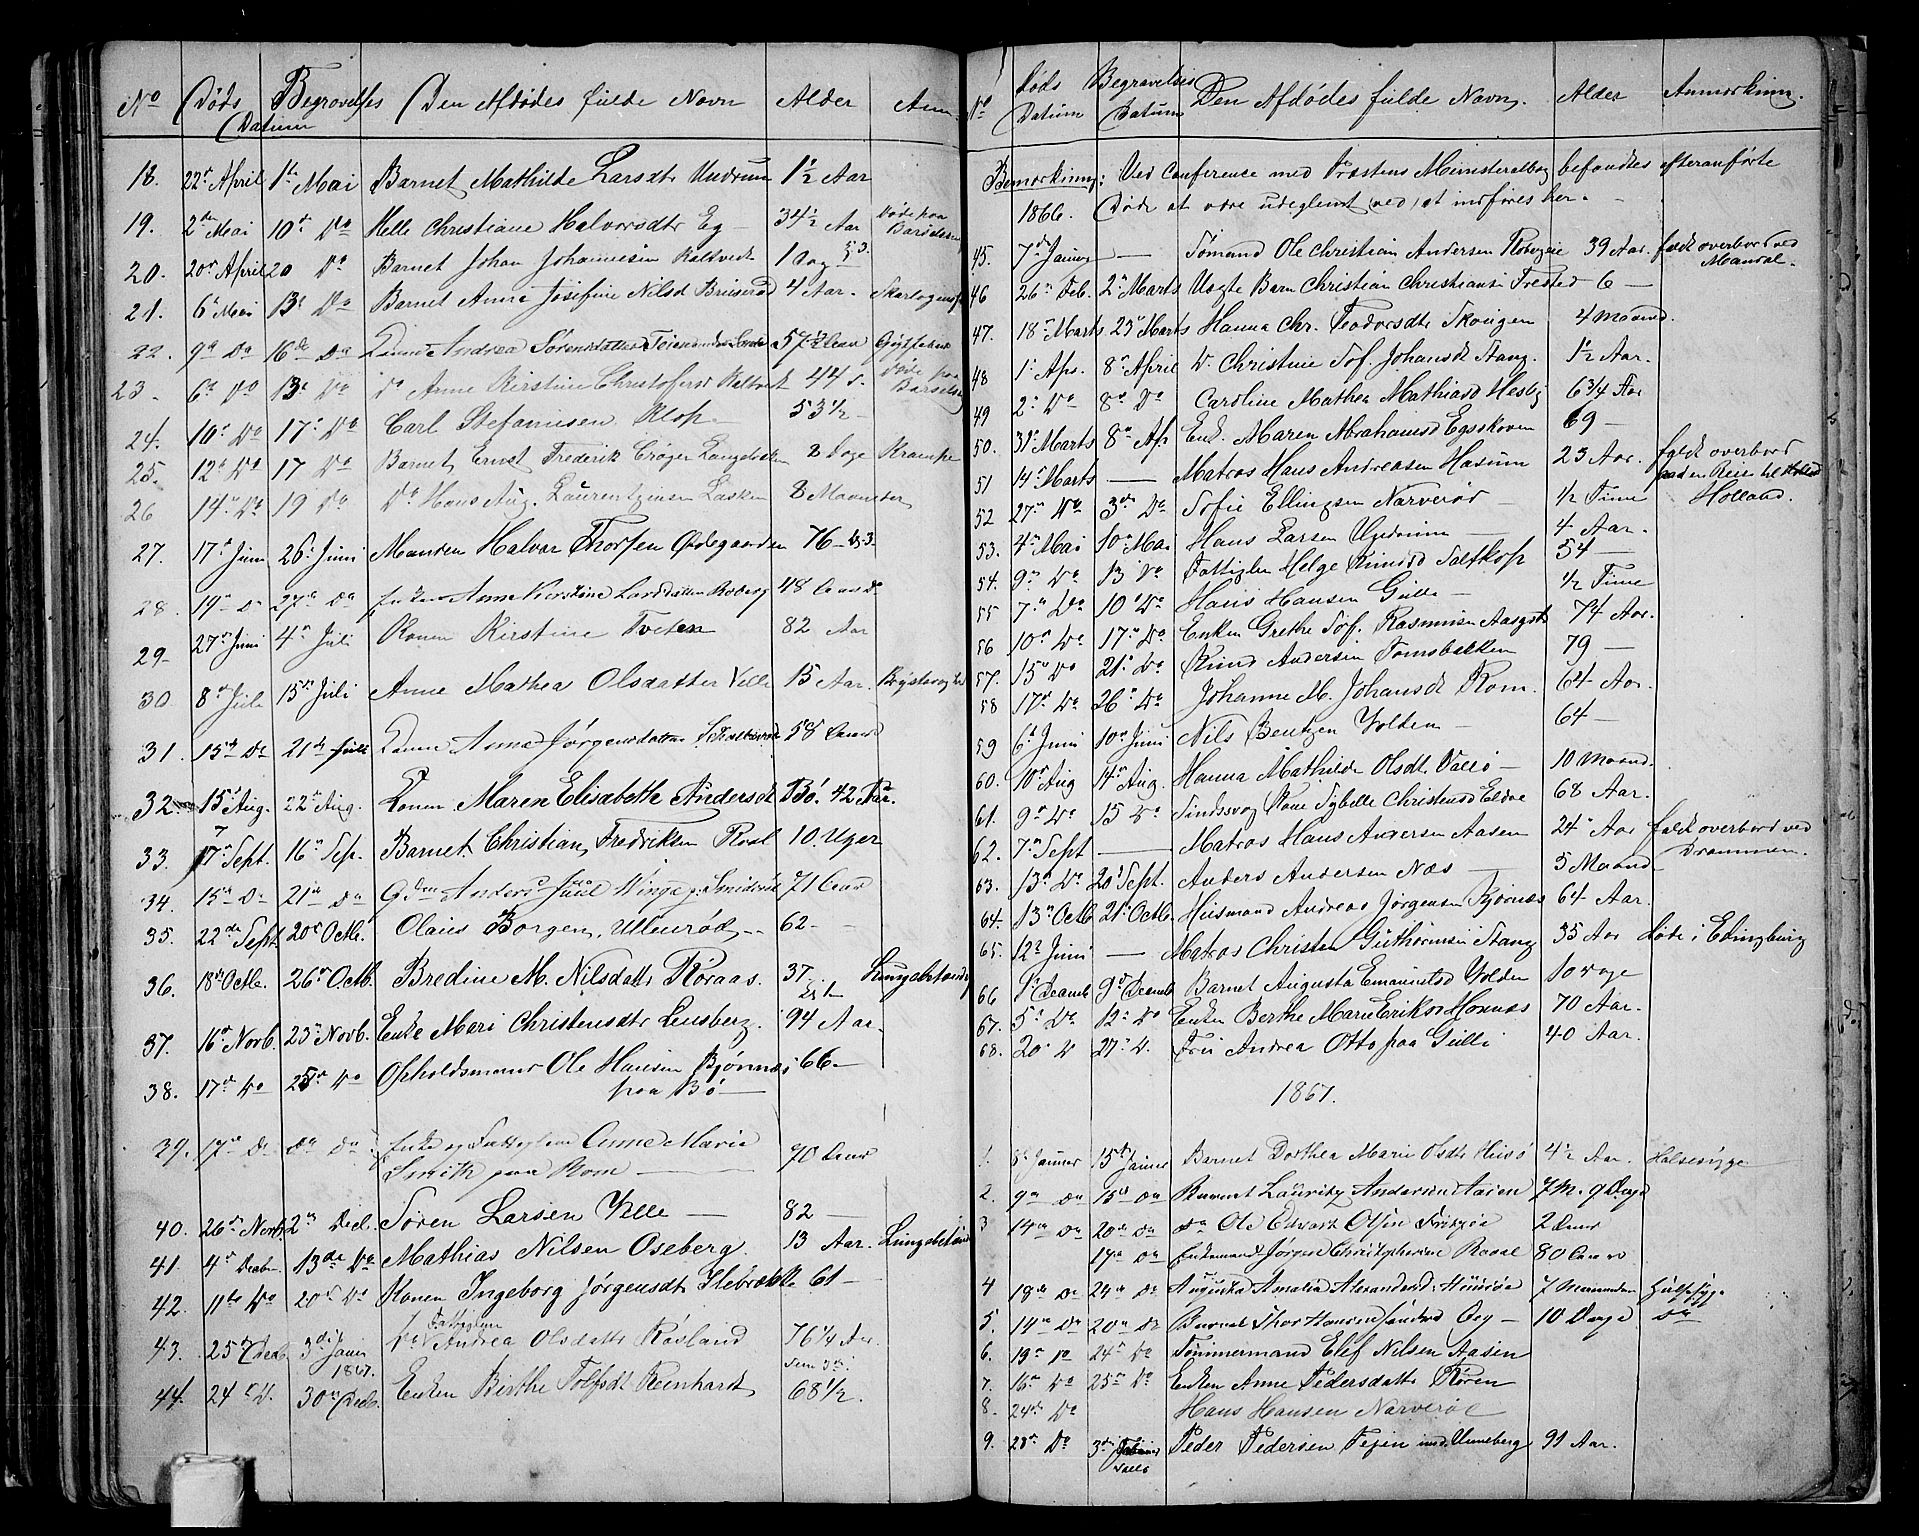 No Døds Datum Begravelses Den Afdødes fulde Navn Alder Anm.
18. 22de April 1ste Mai Barnet Mathilde Larsdtr Undrum 1 1/2 Aar
19. 2den Mai 10de Do Helle Christiane Halvorsdtr Eg 34 1/2 Aar Døde paa Barselsen
20. 20de April 20 Do Barnet Johan Johannesen Raltvedt 1 Dag
21. 6te Mai 13de Do Barnet Anne Josefine Nilsd Bruserød 4 Aar Skarlagensf
22. 9de Do 16de Do Andrea Sørensdatter 57 1/2 Aar
23. 6te Do 13de Do Do Anne Kirstine Christofersd Raltvedt 44 Døde paa Barselseng
24. 10de Do 17de Do Carl Stefanisen Klop 53 1/2
25. 12te Do 17 Do Barnet Ernst Frederik Crøger Langebakken 2 Dage Krampe
26 14de Do 19 Do Do Hans Aug. Laurentzuisen Lasken 8 Maaneder
27. 17de Juni 26de Juni Manden Halvor Thorsen Ødegaarden 76
28. 19de Do 27de Do Enken Anne Kirstine Larsdatter Roberg 48 Aar
29. 27de Juni 4de Juli Konen Kirstine Tveten 82 Aar
30. 8de Juli 15de Juli Anne Mathea Olsdatter Velle 15 Aar.
31. 15de Do 21de Juli Anne Jørgensdatter 58 Aar
32. 15de Aug. 22de Aug. Konen Maren Elisabeth Andersdt Bø. 42 Aar.
33. 17de Sept. 16de Sep. Barnet Christian Fredriksen Roal 10. Uger
34. 15de Do 21de Do Anders Juul Winge 71 Aar
35. 22de Sept 20de Octb. Olaus Borgen, Ullenrød 62
36. 18de Octb. 26de Octb. Bredine M. Nilsdatt Røraas. 37. Lungebetænd
37. 16de Novb. 23de Novb. Enke Mari Christensdtr Lensberg. 94 Aar
38. 17de Do 25de Do Opholdsmand Ole Hansen Bjønnes 66
paa Bø
39. 17de Do Do Do Enke og Fattiglem Anne Marie 70 Aar
Smith paa Rom
40. 26de Novb. 2den Decb. Søren Larsen Velle 82
41. 4de Decbr. 13de Do Mathias Nilsen Oseberg. 13 Aar. Lungebetænd
42. 11te Do 20de Do Konen Ingeborg Jørgensdt Slebrække 61
Fattiglem
43. 25de Decb. 3die Janr 1867. Do Andrea Olsdatt Røsland 76 1/4 Aar
44. 24de D. 30de Decb. Enken Birthe Tolfsdt Reinhardt 68 1/2.
No Døds Datum Begravelses Datum Den Afdødes fulde Navn. Alder Anmerkning.
Bemærkning: Ved Conference med Præstens Ministerialbog befandtes efteranførte
1866. Døde at være udeglemt, ved at indføres her.
45. 7de Januar Sømand Ole Christian Andersen Robergeie 39 Aar. faldt overbord ved Mandal.
46 26de Feb. 2den Marts Uægte Barn Christian Christiansen Frested 6
47. 18de Marts 23de Marts Hanna Chr. Teodorsdtr Skougen 4 Maand.
48 1ste Apr. 8de April D. Christine Sof. Johansdt Stang. 1 1/2 Aar.
49 2den Do 8de Do Caroline Mathea Mathiasd Hesby 6 3/4 Aar
50. 31te Marts 8de Ap Enk. Maren Abrahamsd Egsskoven 69
51 14de Marts Matros Hans Andreasen Hasum 23 Aar. faldt overbord paa den Reise til Holland.
52 27de Do 3die Do Sofie Ellingsen Narverød 1/2 Time
53. 4de Mai 10de Mai Hans Larsen 4 Aar.
54. 9de Do 13 Do Fattiglem Helge Knudsd Saltkop 54
55 7de Do 10de Do Hans Hansen Gulle 1/2 Time
56 10de Do 17de Do Enken Grethe Sof. Rasmusen Aasgst 74 Aar.
57. 15de Do 21de Do Knud Andersen Tomsbakken 79
58 17de Do 26de Do Johanne M. Johansdt Rom. 64 Aar.
59 6te Juni 10de Juni Nils Bentzen Volden 64
60. 10de Aug 14de Aug. Hanna Mathilde Olsdt Vallø 10 Maand.
61. 9de Do 15 Do Sindssvag Kone Sybelle Christensd Eldøe 68 Aar.
62. 7de Sept Matros Hans Andersen Aasen 24 Aar faldt overbord ved Drammen.
63. 13de Do 20de Sept. Anders Andersen Næs 5 Maand
64. 13de Octb 21de Octb. Husmand Andreas Jørgensen Bjørnæs 64 Aar.
65. 12te Juni Matros Christen Guthormsen Stang 35 Aar døde i Edingburg
66 1ste Decemb 9de Decemb Barnet Augusta Emanuelsd Volden 10 Dage
67. 5te Do 12te Do Enken Berthe Marie Eriksen Hornæs 70 Aar.
68. 20de D 27de D. Fru Andrea Otto paa Gulli 40 Aar.
1867.
1. 8de Januar 15de Januar Barnet Dorthea Marie Olsdtr Husø 4 1/2 Aar. Halsesyge
2. 9de Do 15de Do Barnet Lauritz Andersen Aasen 7 M. 9 Dage
3 14de Do 20de Do Do Ole Edvart Olsen 2 Aar
17de Do Enkemand Jørgen Christophersen Roaal 80 Aar
4 18de Do 24de Do Augusta Amalia Alexandersd. Husøe 7 Maaneder Halsesyge
5. 14de Do 20de Do Barnet Thor Hansen 10 Dage Do
6. 19de Do 24de Do Tømmermand Elef Nilsen Aasen
7. 16de Do 25de Do Enken Anne Pedersdatt Røren
8. 24de Do Hans Hansen Narverød
9. 28de Do 3die Februar Vallø Peder Pedersen Fejen ind. Unneberg 91 Aar.